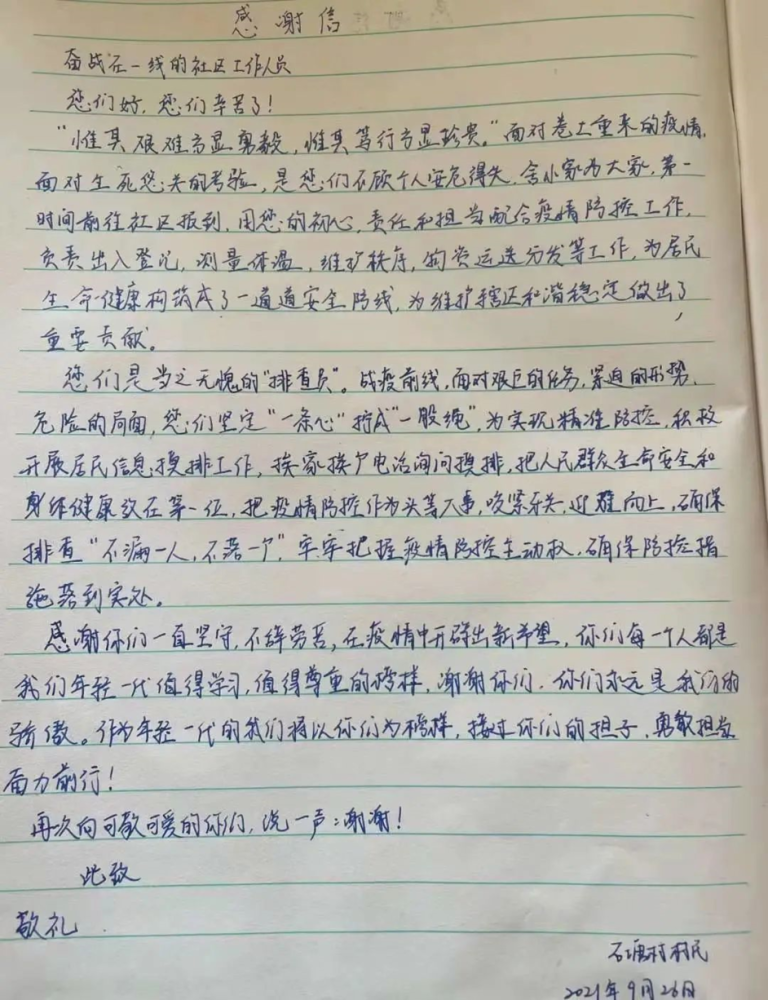 感谢信
奋战在一线的社区工作人员
您们好，您们辛苦了！
“惟其艰难方显勇毅，惟其笃行方显珍贵。”面对卷土重来的疫情，
面对生死悠关的考验，是您们不顾个人安危得失，舍小家为大家，第一
时间前往社区报到，用您的初心，责任和担当配合疫情防控工作，
负责出入登记，测量体温，维护秩序，物资运送分发等工作，为居民
生命健康构筑成了一道道安全防线，为维护辖区和谐稳定做出了
重要贡献。
您们是当之无愧的“排查员”。战疫前线，面对艰巨的任务，紧迫的形势，
危险的局面，您们坚定“一条心”拧成“一股绳”，为实现精准防控，积极
开展居民信息摸排工作，挨家挨户电话询问摸排，把人民群众生命安全和
身体健康放在第一位，把疫情防控作为头等大事，咬紧牙关，迎难向上，确保
排查“不漏一人，不落一个”牢牢把握疫情防控主动权，确保防控措
施落到实处。
感谢你们一直坚守，不辞劳苦，在疫情中开辟出新希望，你们每一个人都是
我们年轻一代值得学习，值得尊重的榜样，谢谢你们，你们永远是我们的
骄傲。作为年轻一代的我们将以你们为榜样，接过你们的担子，勇敢担当
奋力前行！
再次向可敬可爱的你们，说一声：谢谢！
此致
敬礼
石塘村村民
2021年9月26日